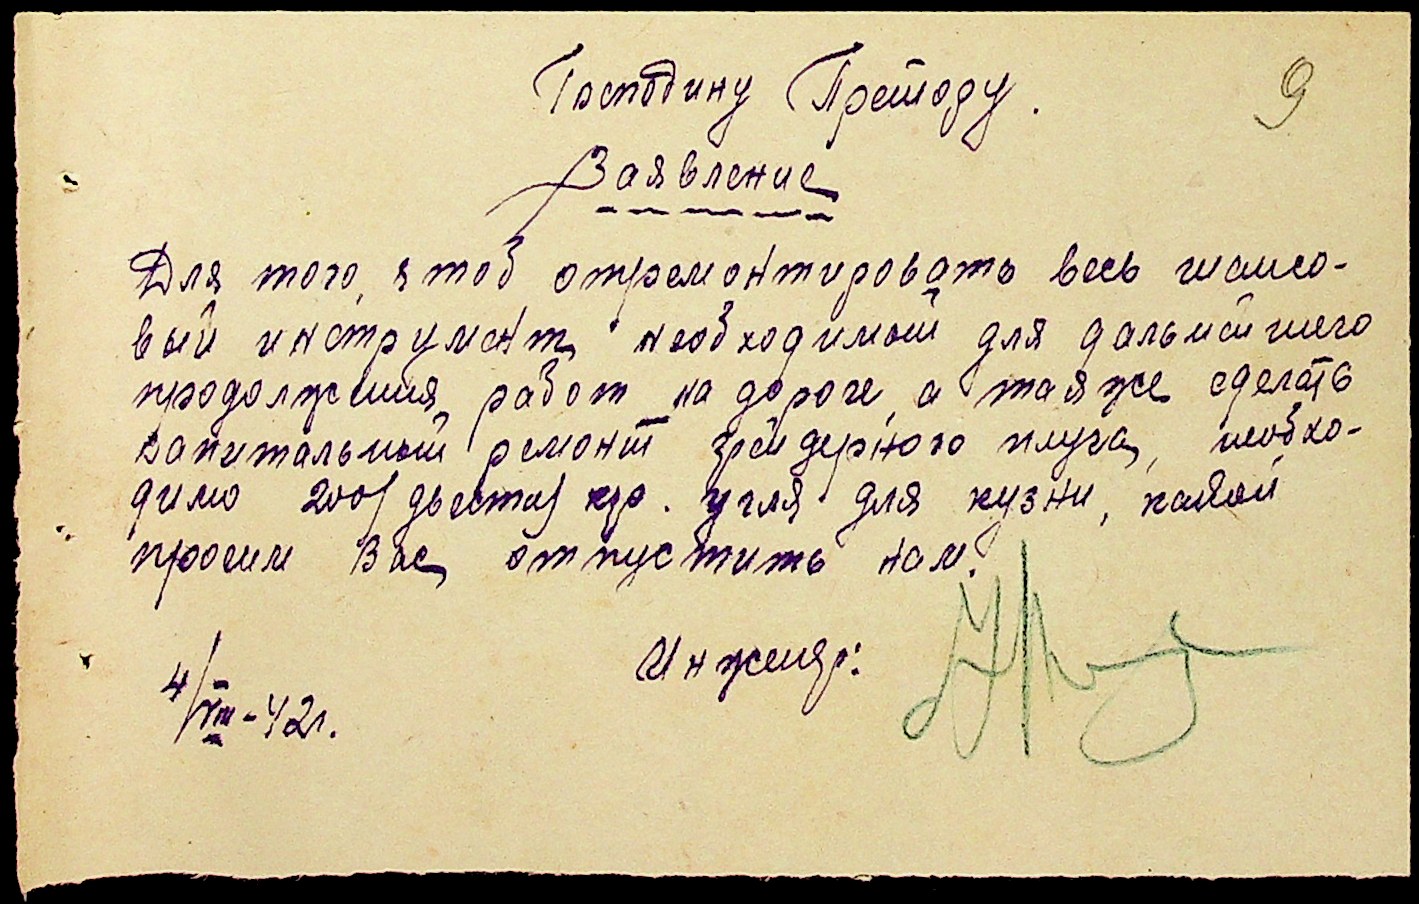 Господину Претору.
9
Заявление
Для того, чтоб отремонтировать весь шансо-
вый инструмент, необходимый для дальнейшего
продолжения работ на дороге, а также сделать
капитальный ремонт грейдерного плуга, необхо-
димо 200/двести/ кгр. угля для кузни, какой
просим Вас отпустить нам.
Инженер:
4/VIII-42г.